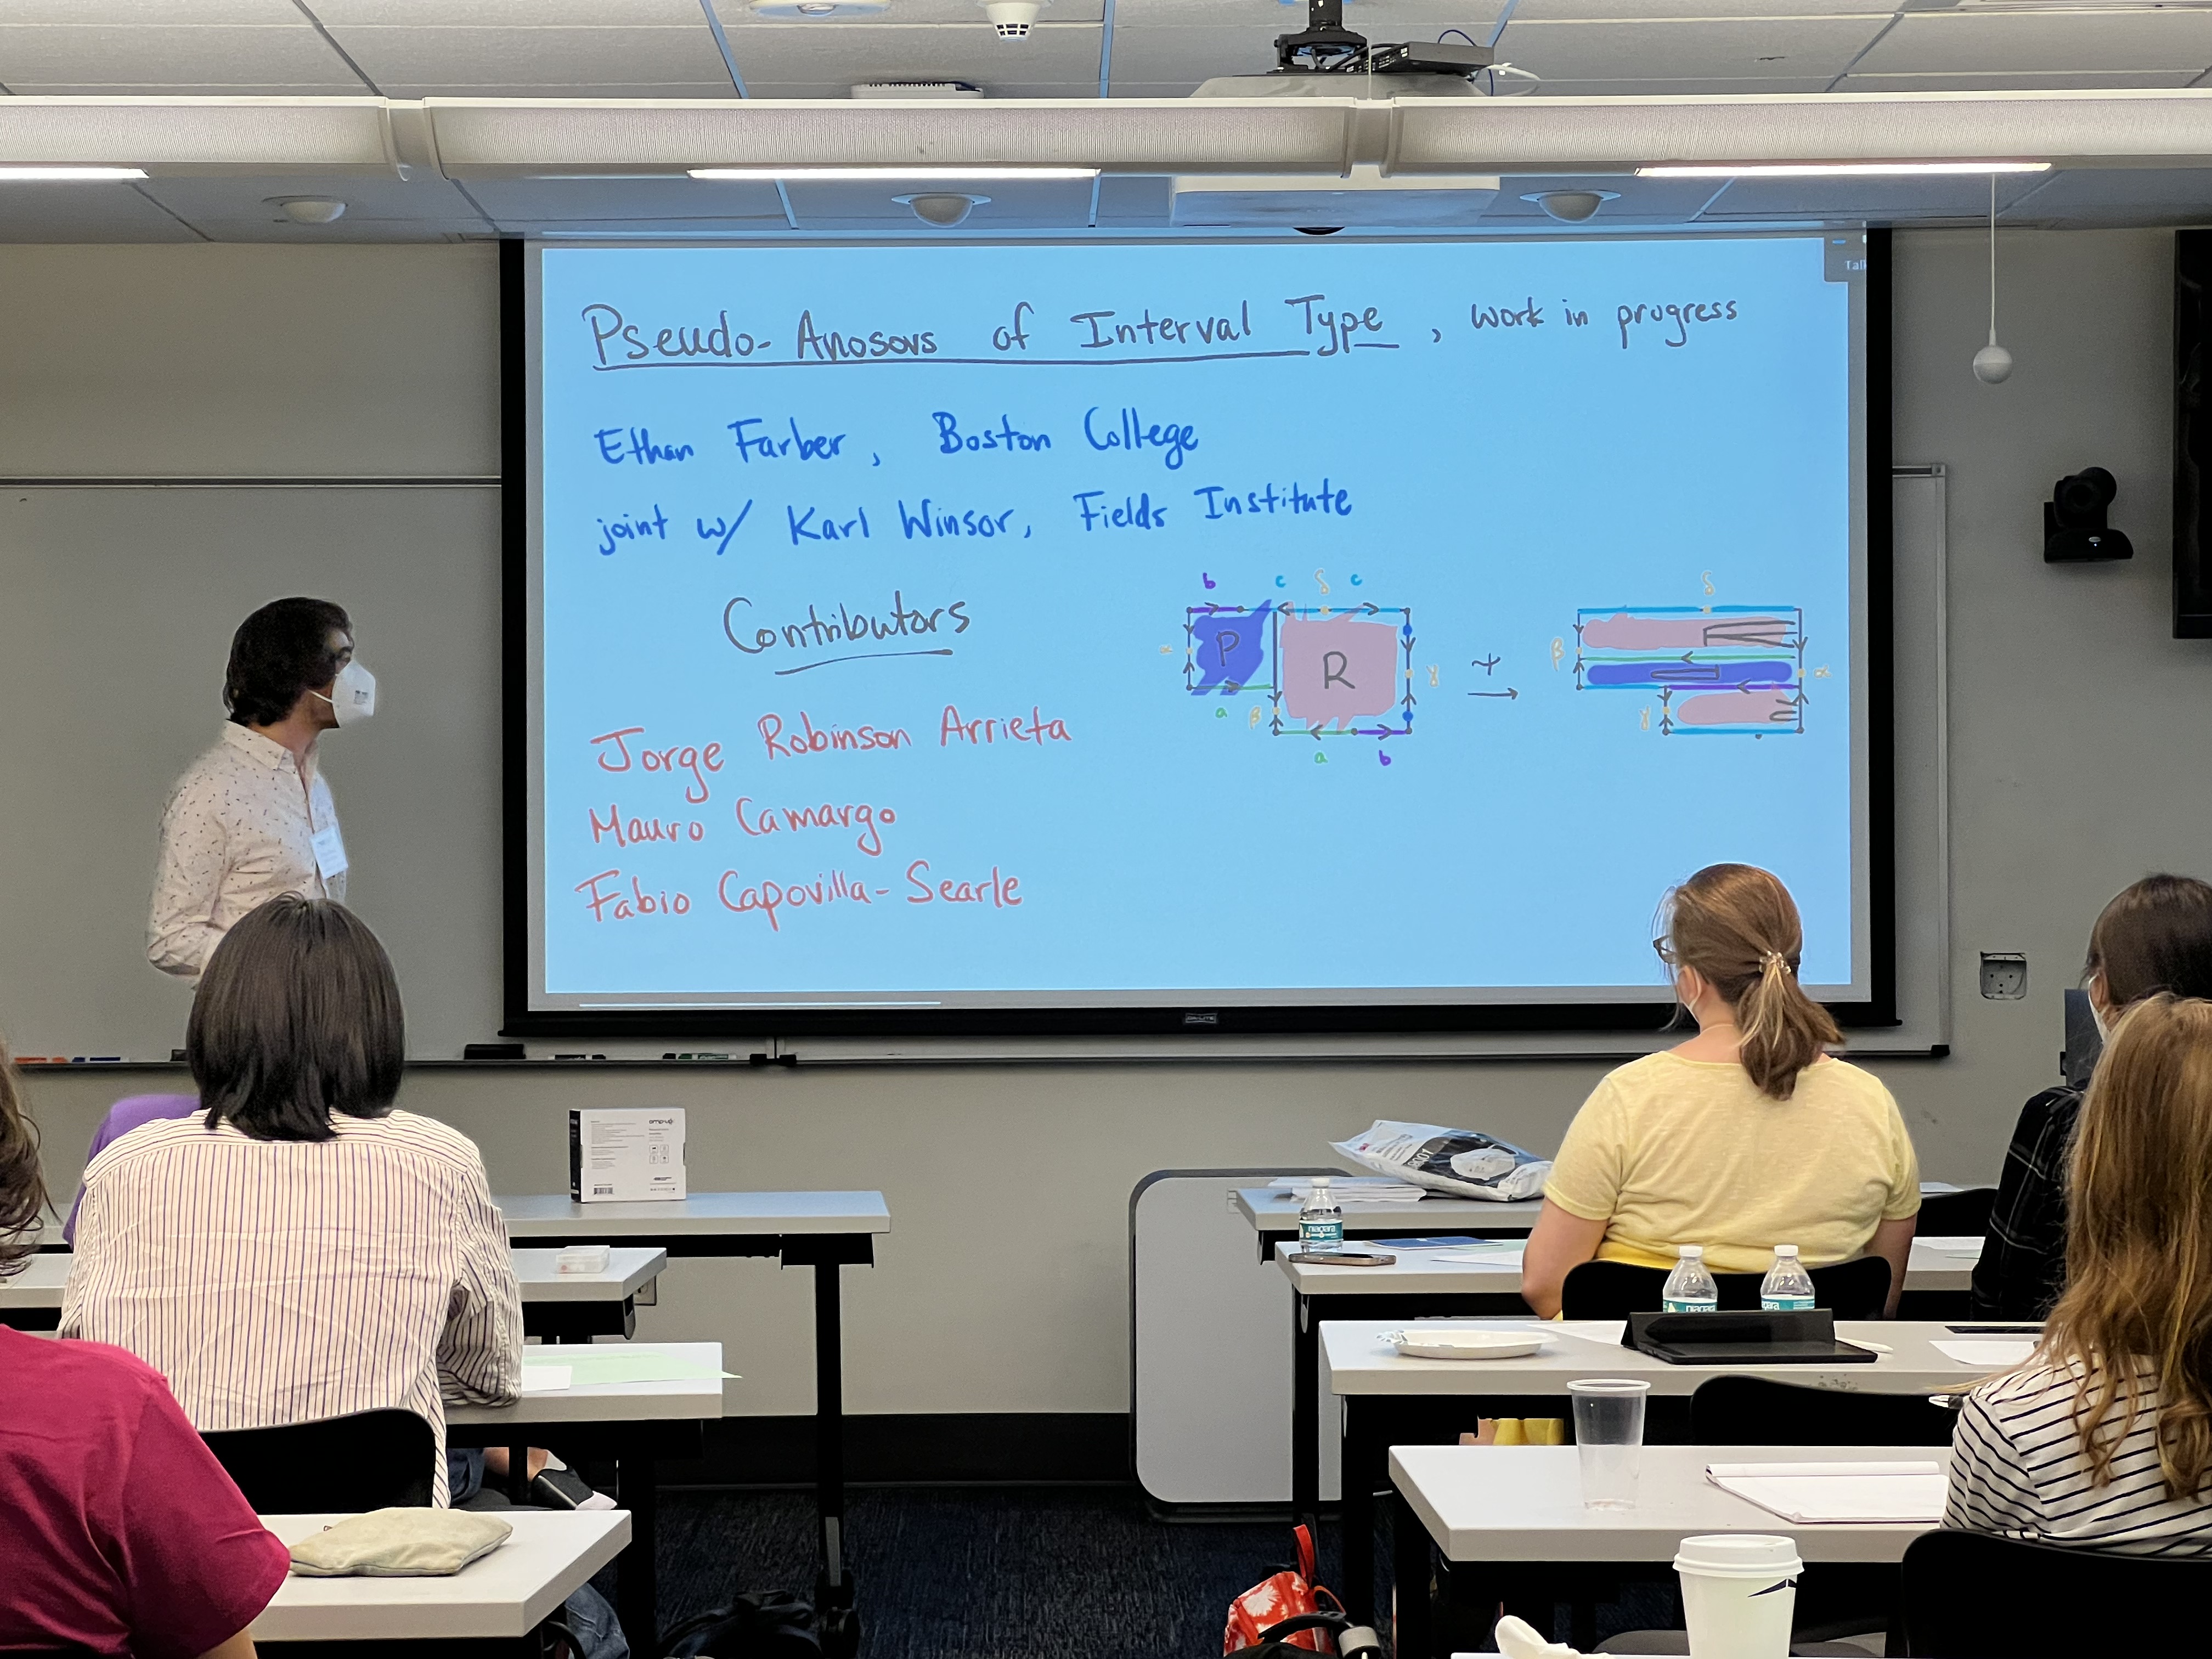 Talk
Pseudo-Anosovs of Interval Type, work in progress
Ethan Farber, Boston College
joint w/ Karl Winsor, Fields Institute
Contributors
Jorge Robinson Arrieta
Mauro Camargo
Fabio Capovilla-Searle
b c δ c δ
P R α β γ β α γ
a a b
DA-LITE
niagara
niagara
niagara